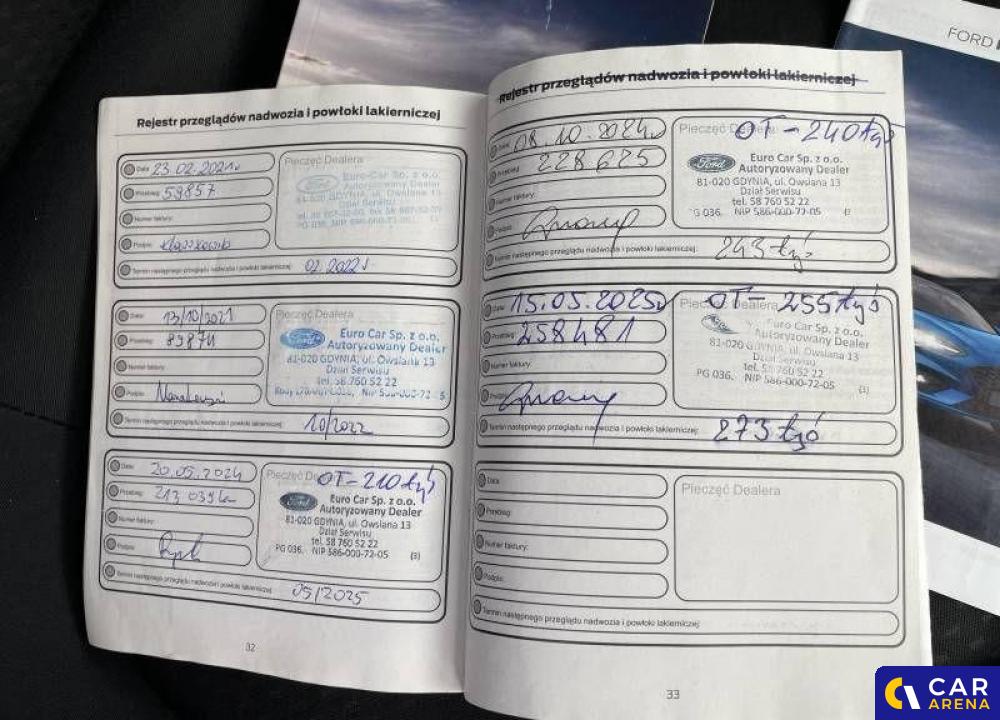 FORD
Rejestr przeglądów nadwozia i powłoki lakierniczej
Data: 23.02.2021r
Przebieg: 59857
Numer faktury:
Podpis:
Pieczęć Dealera
Ford
Euro Car Sp. z o.o.
Autoryzowany Dealer
81-020 GDYNIA, ul. Owsiana 13
Dział Serwisu
Termin następnego przeglądu nadwozia i powłoki lakierniczej: 02.2022r
Data: 13/10/2021
Przebieg: 83874
Numer faktury:
Podpis:
Pieczęć Dealera
Ford
Euro Car Sp. z o.o.
Autoryzowany Dealer
81-020 GDYNIA, ul. Owsiana 13
Dział Serwisu
tel. 58 760 52 22
Termin następnego przeglądu nadwozia i powłoki lakierniczej: 10/2022
Data: 20.05.2024
Przebieg: 213 039
Numer faktury:
Podpis:
Pieczęć
OT-210 tyś
Ford
Euro Car Sp. z o.o.
Autoryzowany Dealer
81-020 GDYNIA, ul. Owsiana 13
Dział Serwisu
tel. 58 760 52 22
PG 036. NIP 586-000-72-05 (3)
Termin następnego przeglądu nadwozia i powłoki lakierniczej: 05/2025
32
Rejestr przeglądów nadwozia i powłoki lakierniczej
Data: 08.10.2024r
Przebieg: 228625
Numer faktury:
Podpis:
Pieczęć Dealera
OT-240 tyś
Ford
Euro Car Sp. z o.o.
Autoryzowany Dealer
81-020 GDYNIA, ul. Owsiana 13
Dział Serwisu
tel. 58 760 52 22
G 036. NIP 586-000-72-05
Termin następnego przeglądu nadwozia i powłoki lakierniczej: 243 tyś
Data: 15.05.2025r
Przebieg: 258481
Numer faktury:
Podpis:
Pieczęć Dealera
OT-255 tyś
Euro Car Sp. z o.o.
Autoryzowany Dealer
81-020 GDYNIA, ul. Owsiana 13
Dział Serwisu
tel. 58 760 52 22
PG 036. NIP 586-000-72-05 (3)
Termin następnego przeglądu nadwozia i powłoki lakierniczej: 273 tyś
Data:
Przebieg:
Numer faktury:
Podpis:
Pieczęć Dealera
Termin następnego przeglądu nadwozia i powłoki lakierniczej:
33
CAR
ARENA